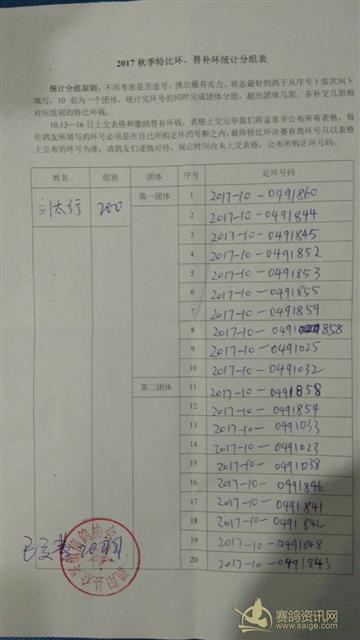 2017 秋季特比环、普补环统计分组表
统计分组原则：不用考虑是否连号，挑出最有实力、状态最好的鸽子从序号 1 依次向下
填写，10 羽为一个团体，统计完环号的同时完成团体分组，超出团体几羽，多补交几羽相
对应组别的特比环钱。
10.13—16 日上交表格和缴纳普补环钱，表格上交完毕我们将盖章并公布所有表格，每
位鸽友所填写的环号必须是在自己所购足环的号断之内，最终特比环决赛有效环号只以表格
上公布的环号为准，请鸽友们谨慎对待，规定时间内未上交表格，公布所购正环号码。
姓名 组别 团体 序号 足环号码
刘太行 200 第一团体 1 2017-10-0491860
2 2017-10-0491844
3 2017-10-0491845
4 2017-10-0491852
5 2017-10-0491853
6 2017-10-0491855
7 2017-10-0491859
8 2017-10-0491858
9 2017-10-0491025
10 2017-10-0491032
第二团体 11 2017-10-0491858
12 2017-10-0491854
13 2017-10-0491033
14 2017-10-0491023
15 2017-10-0491038
16 2017-10-0491846
17 2017-10-0491841
18 2017-10-0491842
19 2017-10-0491848
20 2017-10-0491843
已交
赛鸽资讯网
www.saige.com